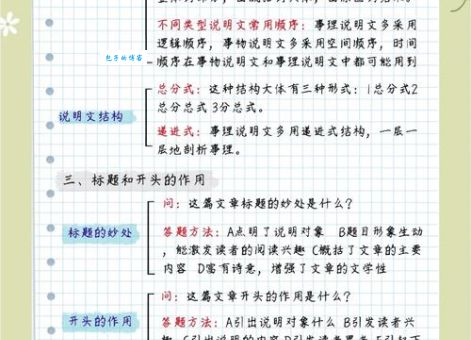 不同类型说明文常用顺序：事理说明文多采用
逻辑顺序，事物说明文多采用空间顺序，时间
顺序在事物说明文和事理说明文中都可能用到
包子的博客
说明文结构
总分式：这种结构大体有三种形式：1总分式2
总分总式 3分总式。
递进式：事理说明文多用递进式结构，一层一
层地剖析事理。
三、标题和开头的作用
标题的妙处
问：这篇文章标题的妙处是什么？
答题方法：A点明了说明对象 B题目形象生动
，能激发读者的阅读兴趣 C概括了文章的主要
内容 D富有诗意，增强了文章的文学性
开头的作用
问：这篇文章开头的作用是什么？
答题方法：A引出说明对象什么 B引发读者兴